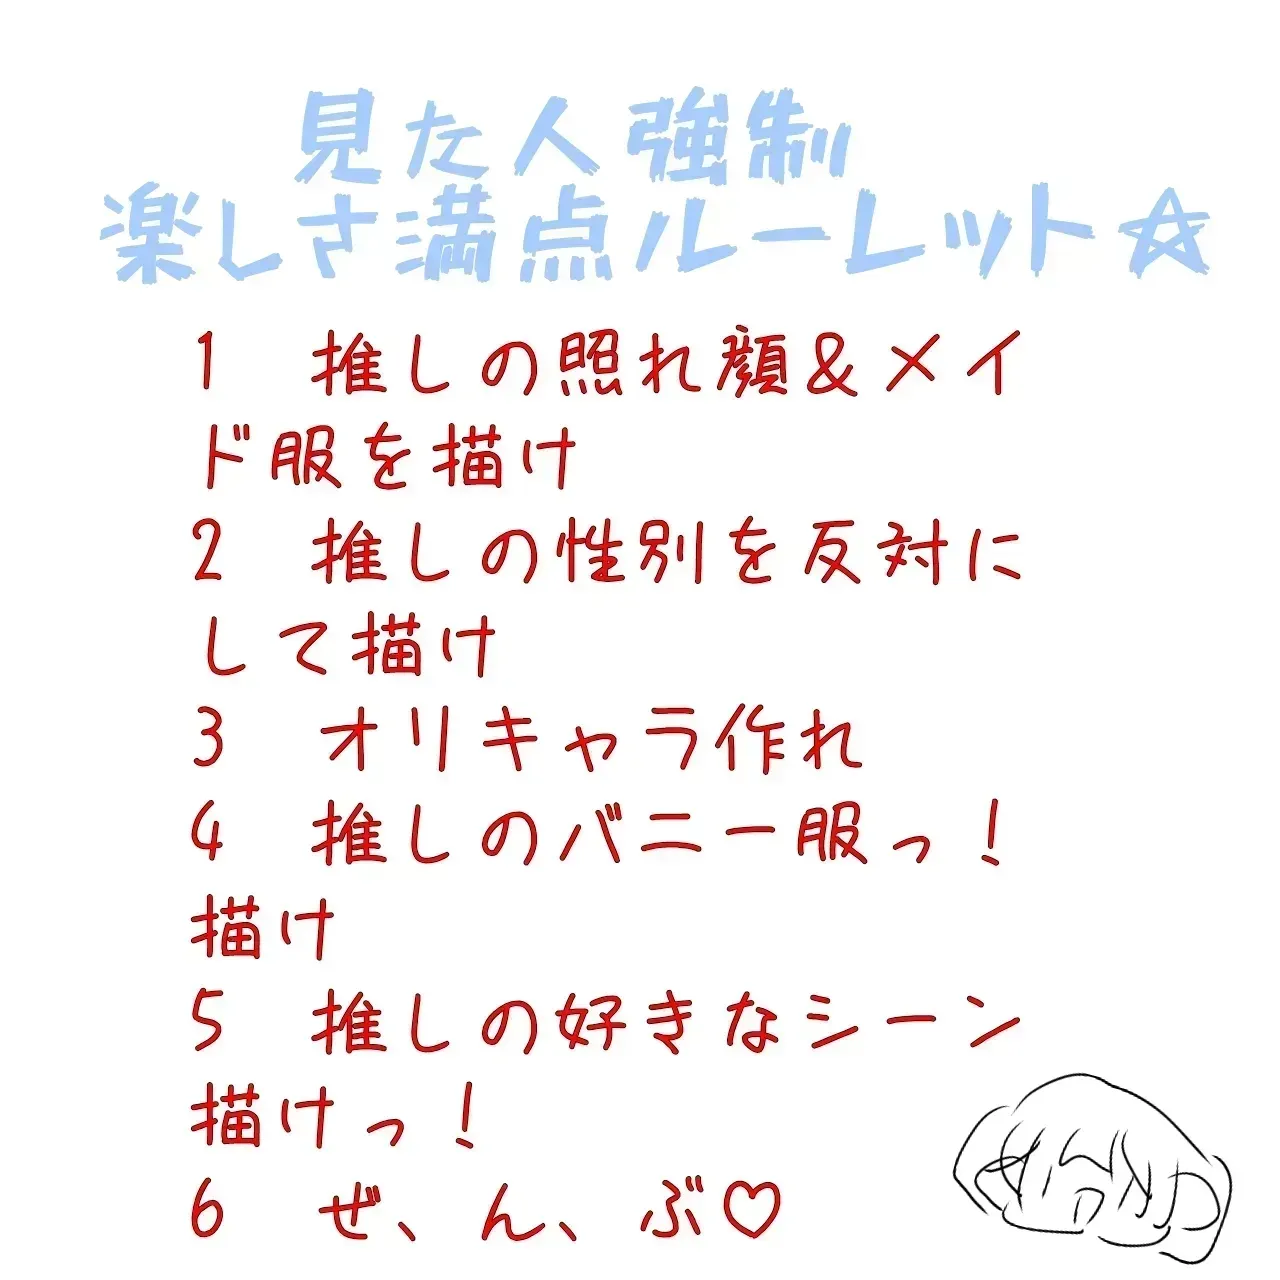 見た人強制
楽しさ満点ルーレット☆
1　推しの照れ顔&メイ
ド服を描け
2　推しの性別を反対に
して描け
3　オリキャラ作れ
4　推しのバニー服っ!
描け
5　推しの好きなシーン
描けっ!
6　ぜ、ん、ぶ♡